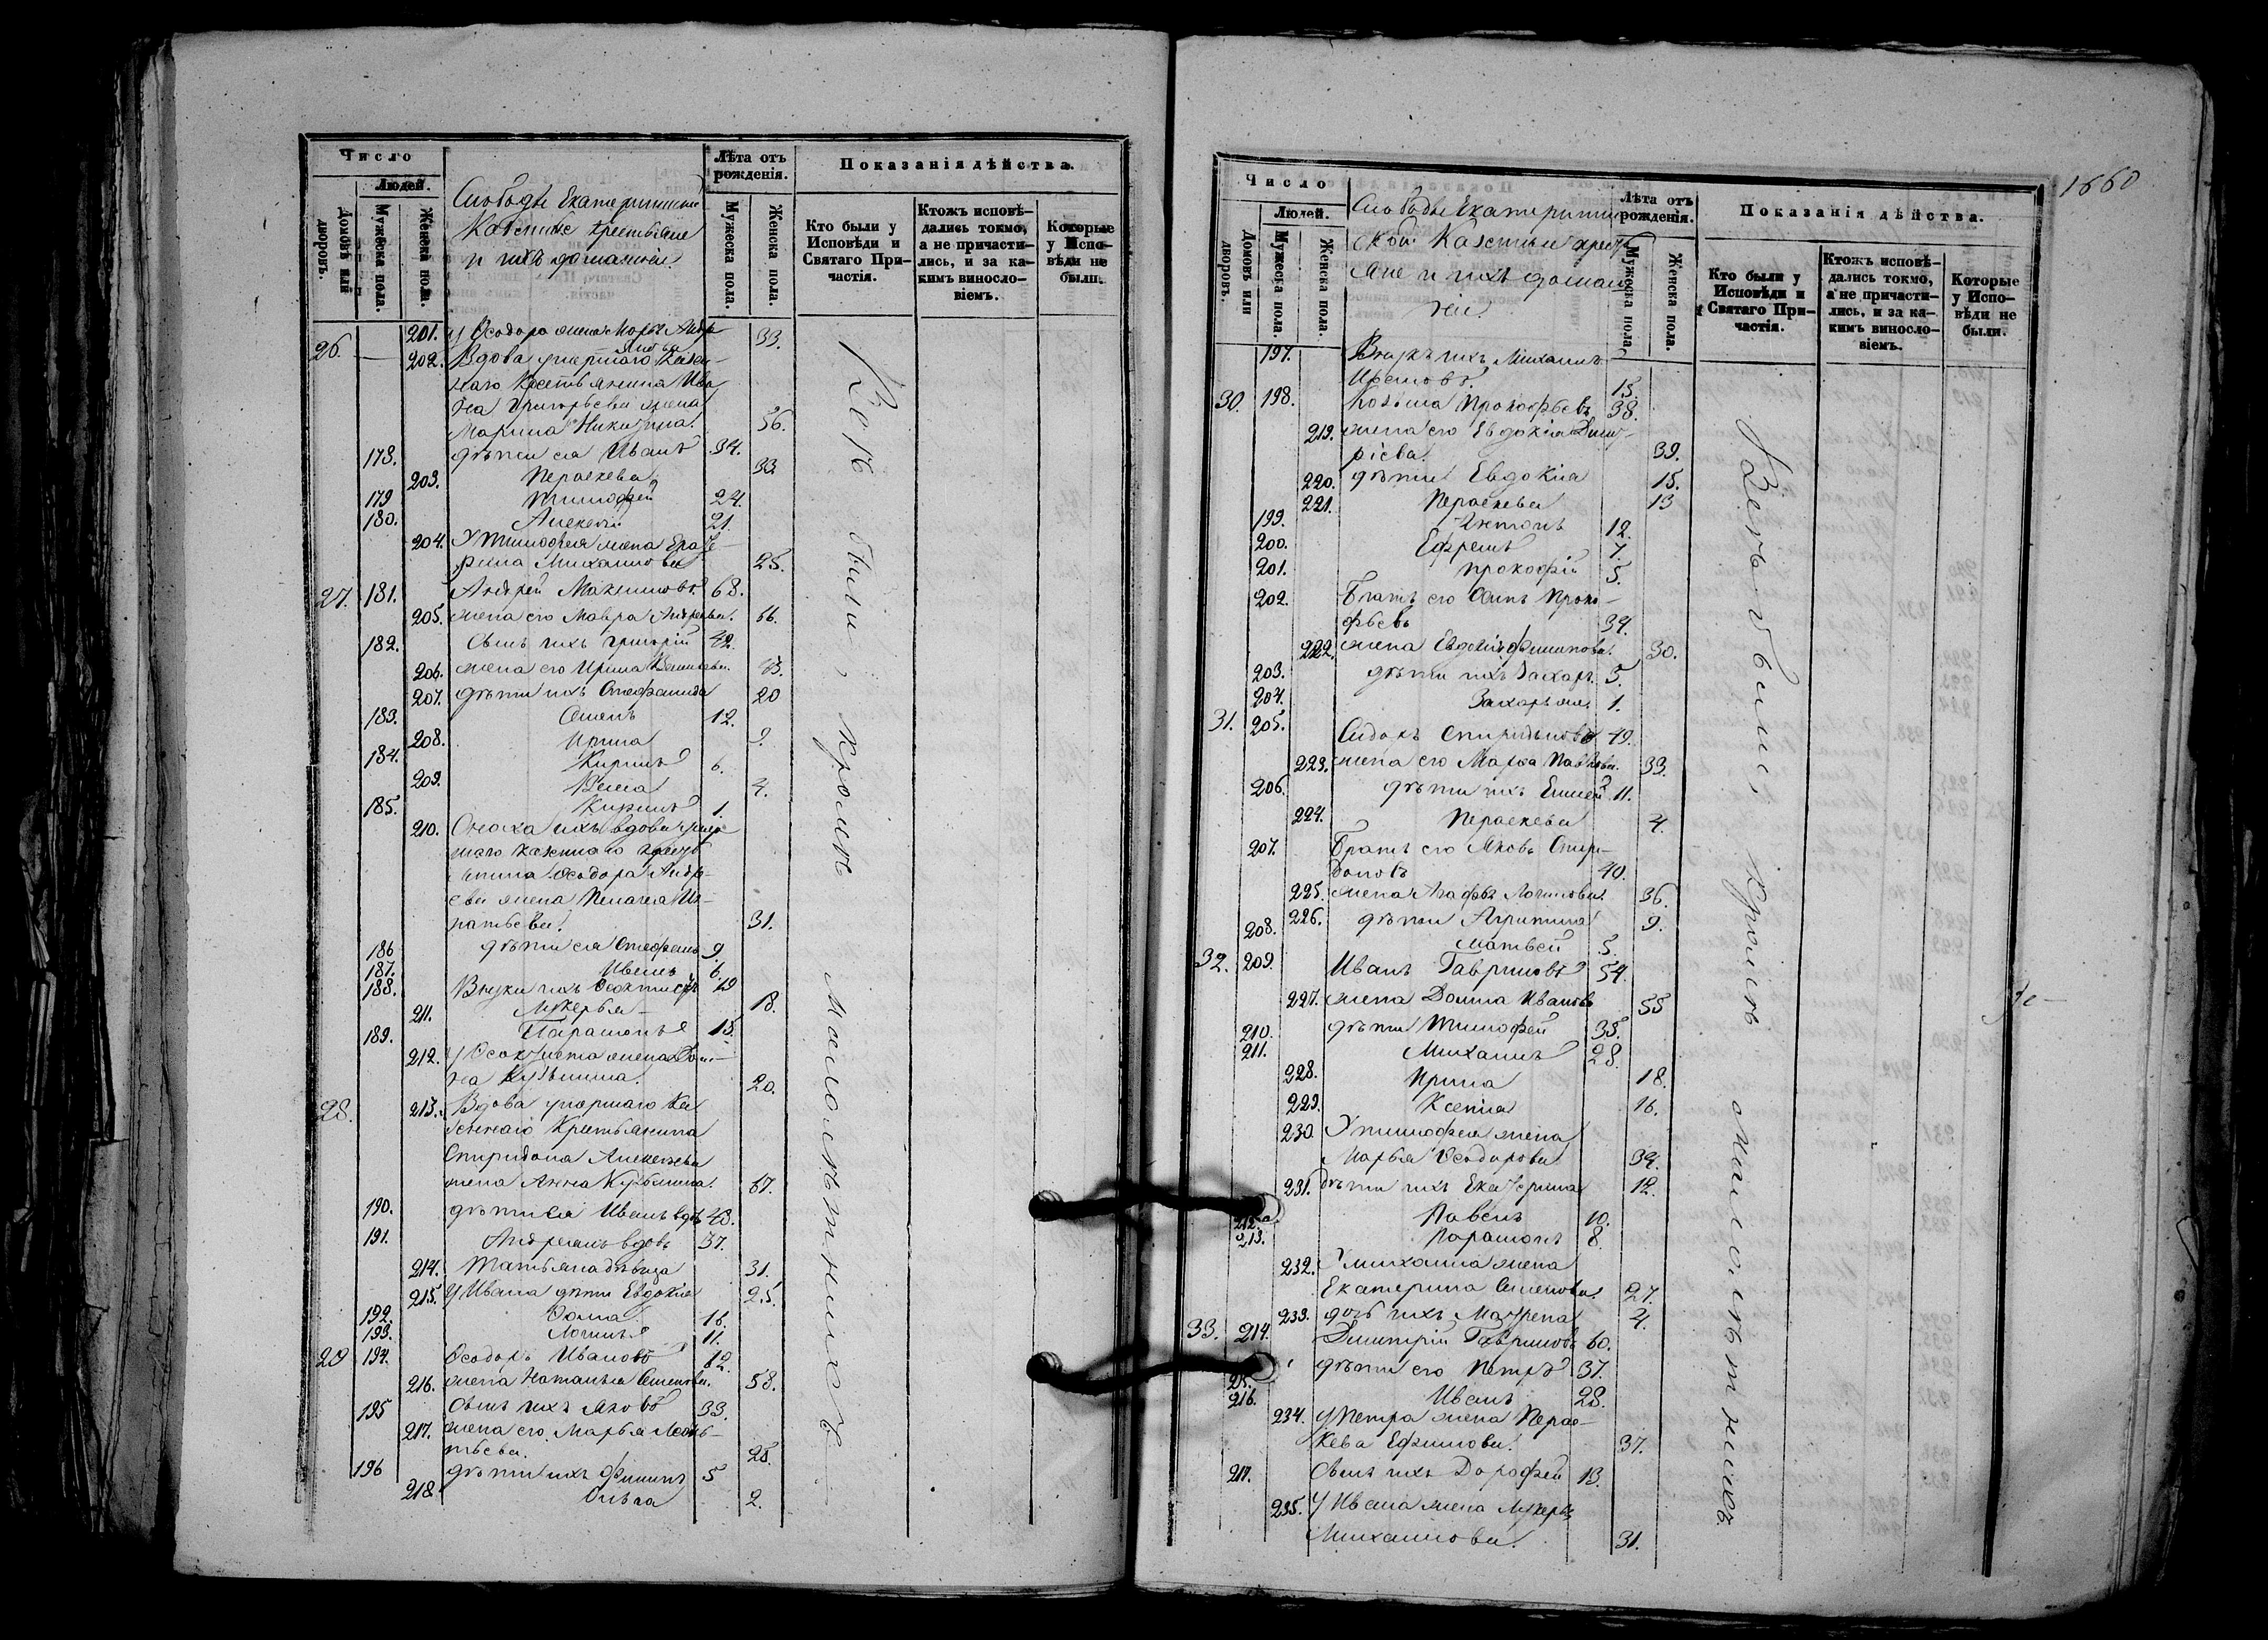 Число
Людей.
Домовъ или дворовъ.
Мужеска пола.
Женска пола.
Слободы Екатерининской
Казенные крестьяне
и ихъ домашніе.
Лѣта отъ рожденія.
Мужеска пола.
Женска пола.
Показанія дѣйства.
Кто были у Исповѣди и Святаго Причастія.
Ктожъ исповѣдались токмо, а не причастились, и за какимъ винословіемъ.
Которые у Исповѣди не были.
201. У Ѳеодора жена Марѳа 33.
26. 202. Вдова умершаго Казен-
наго Крестьянина Ива
на Григорьева жена
Марина Никитина. 56.
178. дѣти ея Иванъ 34.
203. Параскева 33
179 Тимофей 24.
180. Алексѣй 21.
204. У Тимофея жена Екате
рина Михайлова 25.
27. 181. Андрей Максимовъ 68.
205. жена его Мавра Андреева. 66.
182. Сынъ ихъ Григорій 42.
206. жена его Ирина 43.
207. дѣти ихъ Стефанида 20
183. Семенъ 12.
208. Ирина 9.
184. Кирилъ 6.
209. 4.
185. Кирилъ 1.
210. Сноха ихъ вдова умер
шаго казеннаго крест
янина Ѳеодора Андре-
ева жена Пелагея Иг-
натьева. 31.
186 дѣти ея Стефанъ 9.
187. Иванъ 6.
188. Внуки ихъ 19
211. Лукерья 18.
189. Парамонъ 15.
212. У жена Дом-
на Кузьмина. 20.
28. 213. Вдова умершаго Ка
зеннаго Крестьянина
Спиридона Алексѣева
жена Анна Кузьмина. 67.
190. дѣти ея Иванъ вдов 43.
191. Андреянъ вдовъ 37.
214. Татьяна дѣвица 31.
215. У Ивана дѣти Евдокія 25.
192. Ѳома 16.
193. Логинъ 11.
29 194. Ѳеодоръ Ивановъ 62.
216. жена Наталья Семенова. 58.
195 Сынъ ихъ Яковъ 33.
217. жена его Марья Леонь-
тьева. 28.
196 дѣти ихъ Филипъ 5
218 Ольга 2.
Всѣ были, кромѣ малолѣтнихъ
1660
Число
Людей.
Домовъ или дворовъ.
Мужеска пола.
Женска пола.
Слободы Екатеринин
ской Казенные крестья
яне и ихъ домаш
ніе.
Лѣта отъ рожденія.
Мужеска пола.
Женска пола.
Показанія дѣйства.
Кто были у Исповѣди и Святаго Причастія.
Ктожъ исповѣдались токмо, а не причастились, и за какимъ винословіемъ.
Которые у Исповѣди не были.
197. Внукъ ихъ Михаилъ
15.
30. 198. Козьма Прокофьевъ 38.
219. жена его Евдокія Дими-
ріева. 39.
220. дѣти Евдокія 15.
221. Параскева 13
199. Антонъ 12.
200. Ефремъ 7.
201. Прокофій 5.
202. Братъ его Прокo-
фьевъ 34.
222. жена Евдокія Филипова. 30.
203. дѣти ихъ Захаръ 5.
204. Захаръ 1.
31. 205. Сидоръ Спиридоновъ 49.
223. жена его Марѳа Павлова. 33.
206. дѣти ихъ Елисей 11.
224. Параскева 4.
207. Братъ его Яковъ Спири-
доновъ 40.
225. жена Агафья Логинова. 36.
226. дѣти Агрипина 9.
208. Матвей 5.
32. 209. Иванъ Гавриловъ 54.
227. жена Домна Иванова 55
210. дѣти Тимофей 35.
211. Михаилъ 28.
228. Ирина 18.
229. Ксенія 16.
230. У Тимофея жена
Марья Ѳеодорова 34.
231. дѣти ихъ Екатерина 12.
212. Павелъ 10.
213. Парамонъ 8.
232. У Михаила жена
Екатерина Семенова. 27.
233. дочь ихъ Матрена 4.
33. 214. Димитрій Гавриловъ 60.
215. дѣти его Петръ 37.
216. Иванъ 28.
234. У Петра жена Парас-
кева Ефимова. 37.
217. Сынъ ихъ Дорофей 13.
235. У Ивана жена Лукерья
Михайлова. 31.
Всѣ были, кромѣ малолѣтнихъ